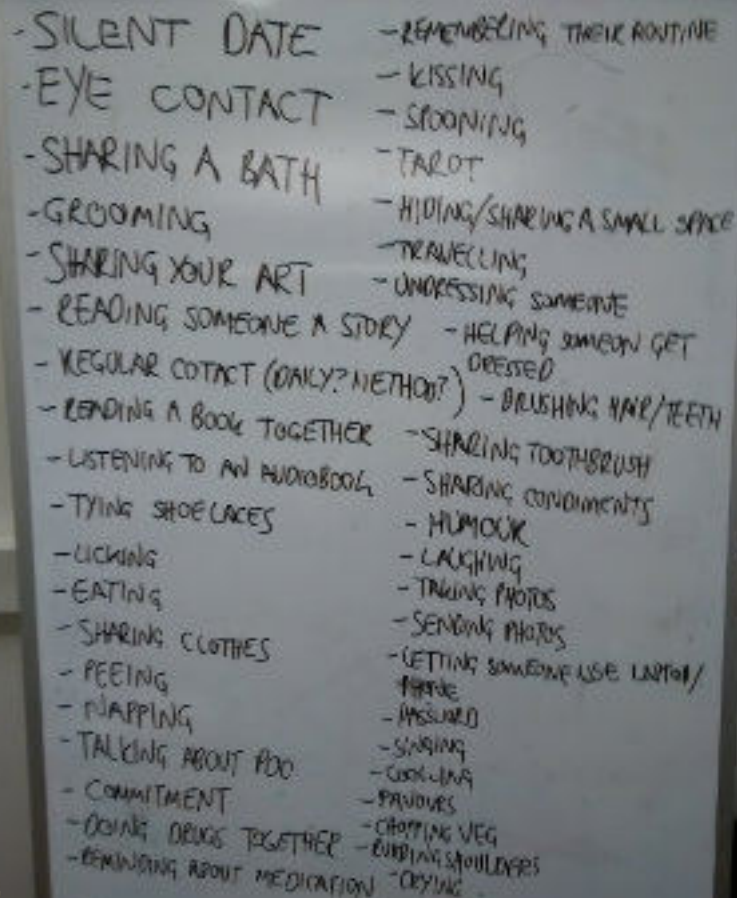 - SILENT DATE
- EYE CONTACT
- SHARING A BATH
- GROOMING
- SHARING YOUR ART
- READING SOMEONE A STORY
- REGULAR COTACT (DAILY? METHOD?)
- READING A BOOK TOGETHER
- LISTENING TO AN AUDIOBOOK
- TYING SHOELACES
- LICKING
- EATING
- SHARING CLOTHES
- PEEING
- NAPPING
- TALKING ABOUT POO
- COMMITMENT
- DOING DRUGS TOGETHER
- REMINDING ABOUT MEDICATION
- REMEMBERING THEIR ROUTINE
- KISSING
- SPOONING
- TAROT
- HIDING/SHARING A SMALL SPACE
- TRAVELLING
- UNDRESSING SOMEONE
- HELPING SOMEON GET
DRESSED
- BRUSHING HAIR/TEETH
- SHARING TOOTHBRUSH
- SHARING CONDIMENTS
- HUMOUR
- LAUGHING
- TAKING PHOTOS
- SENDING PHOTOS
- LETTING SOMEONE USE LAPTOP/
PHONE
- PASSWORD
- SINGING
- COOKING
- FAVOURS
- CHOPPING VEG
- RUBBING SHOULDERS
- CRYING